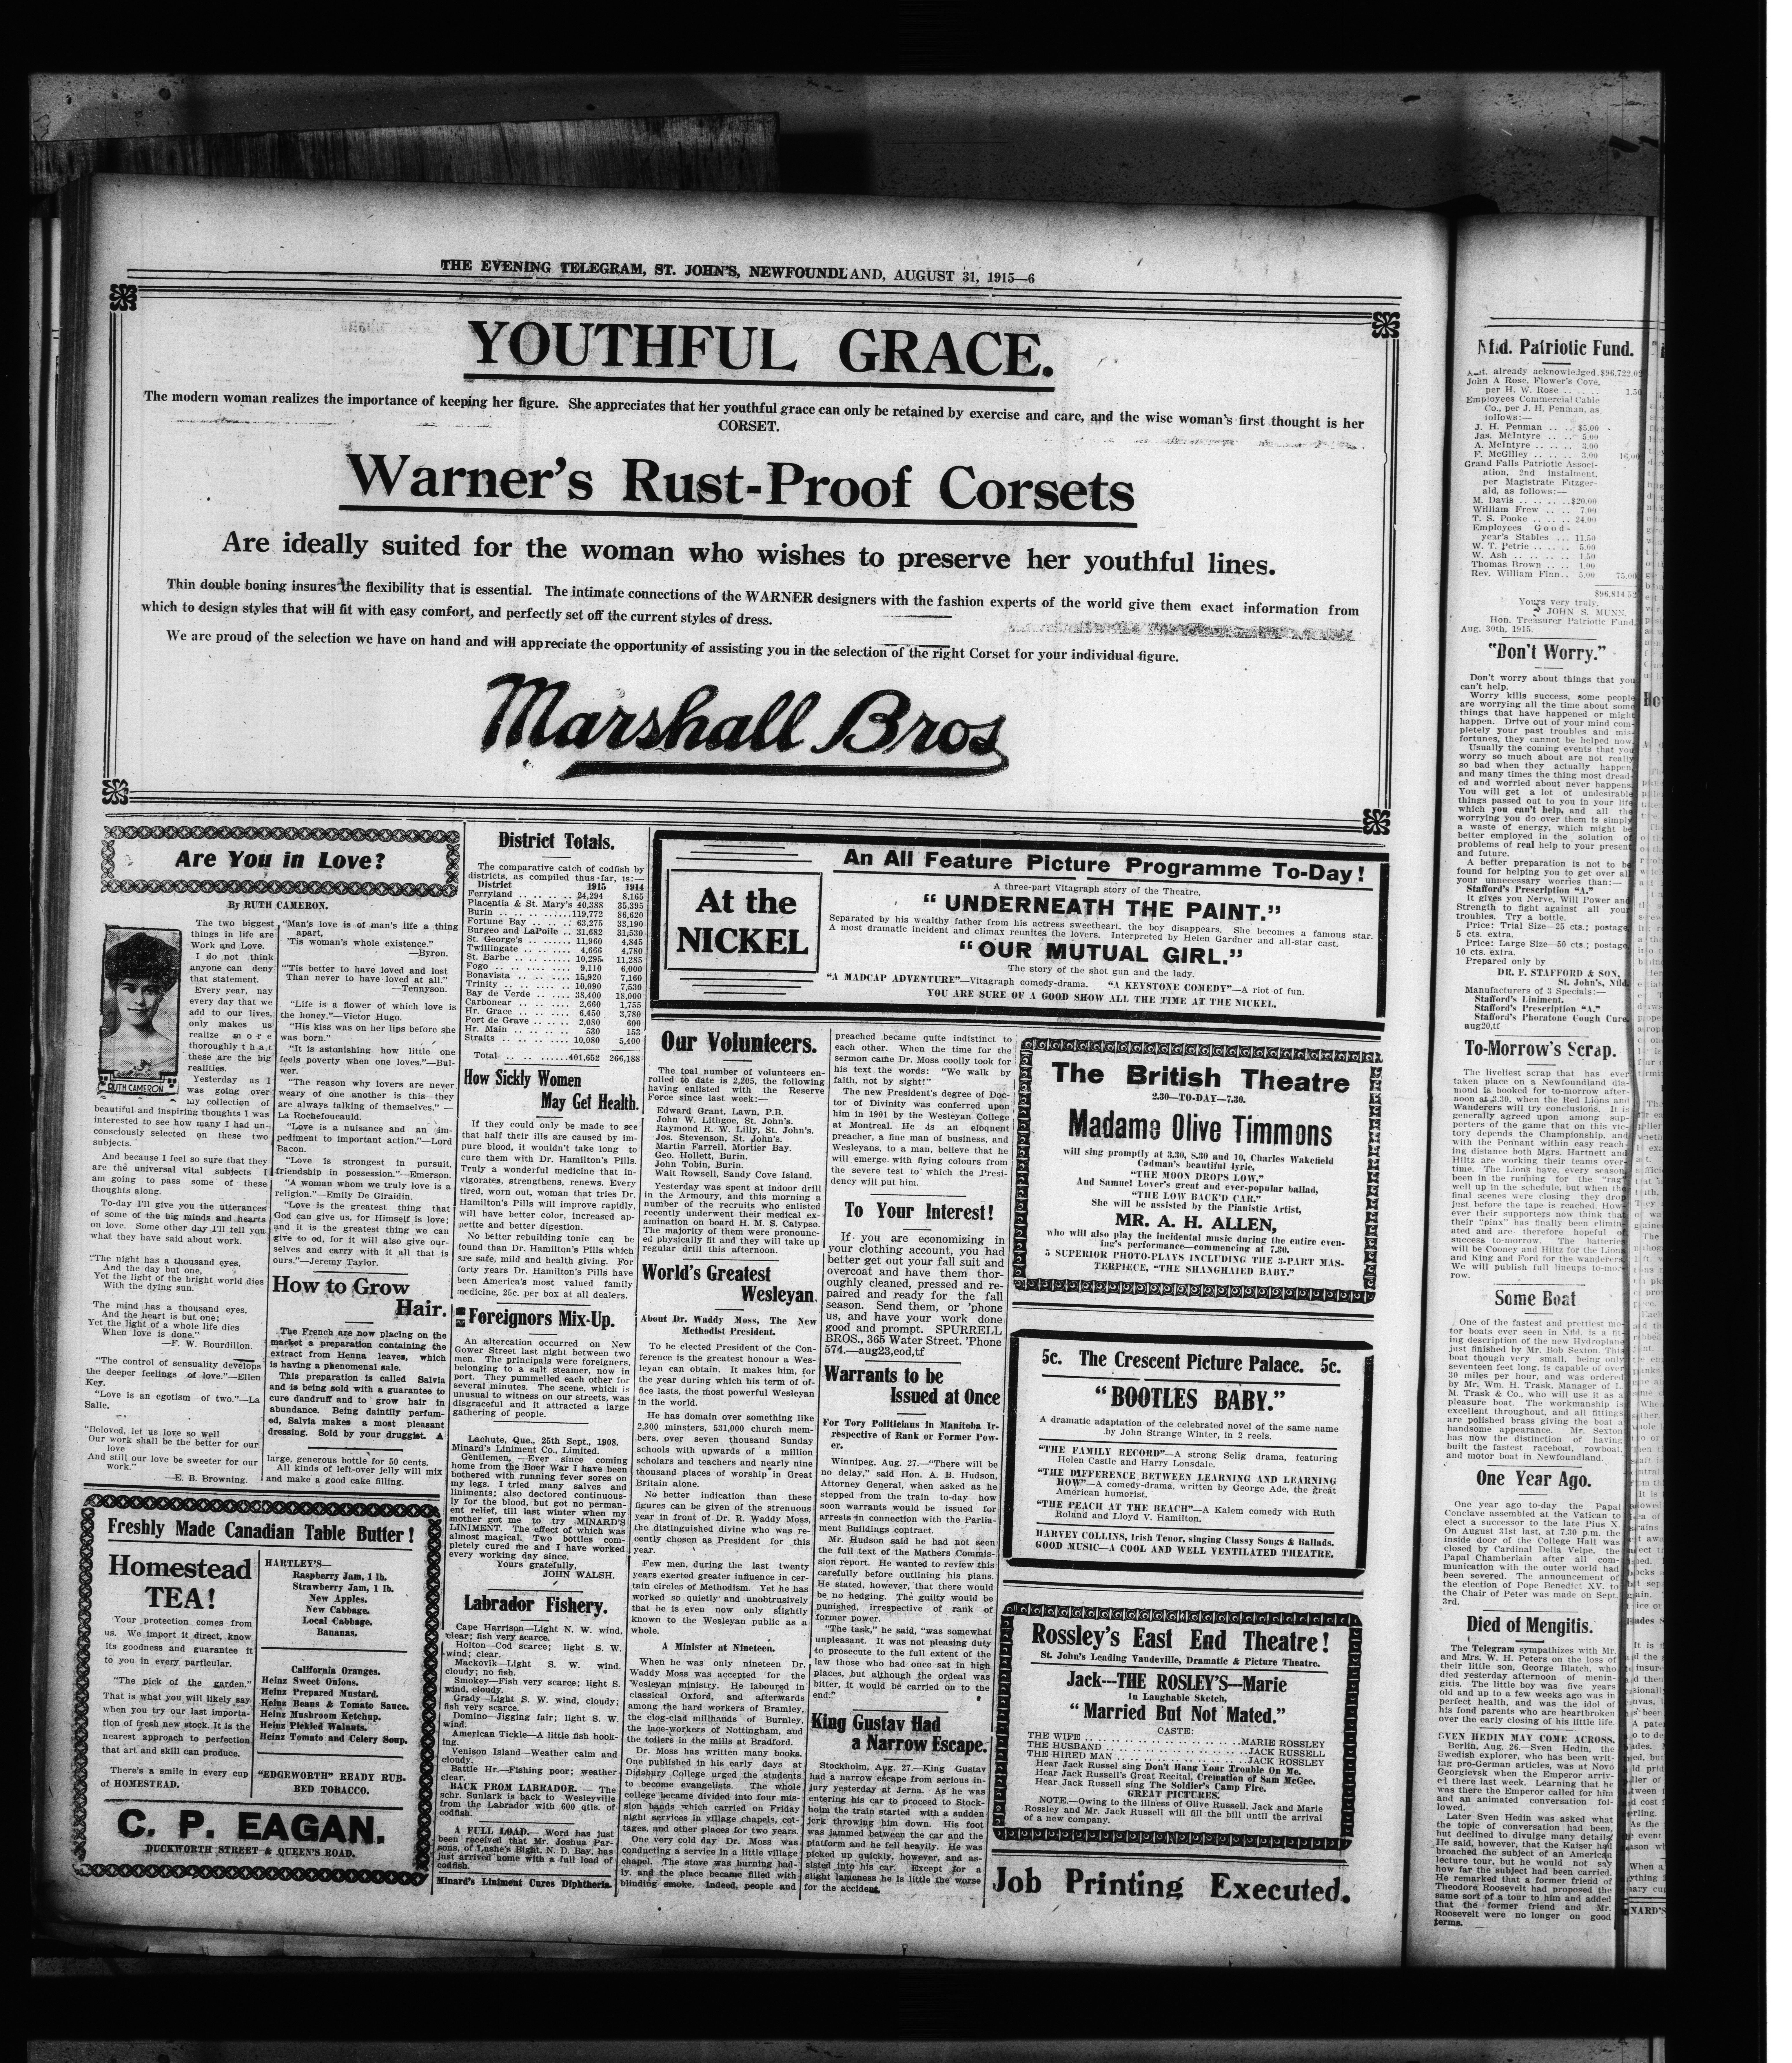 THE EVENING TELEGRAM, ST. JOHN'S, NEWFOUNDLAND, AUGUST 31, 1915—6
YOUTHFUL GRACE.
The modern woman realizes the importance of keeping her figure. She appreciates that her youthful grace can only be retained by exercise and care, and the wise woman's first thought is her
CORSET.
Warner's Rust-Proof Corsets
Are ideally suited for the woman who wishes to preserve her youthful lines.
Thin double boning insures the flexibility that is essential. The intimate connections of the WARNER designers with the fashion experts of the world give them exact information from
which to design styles that will fit with easy comfort, and perfectly set off the current styles of dress.
We are proud of the selection we have on hand and will appreciate the opportunity of assisting you in the selection of the right Corset for your individual figure.
Marshall Bros
Are You in Love?
By RUTH CAMERON.
RUTH CAMERON
The two biggest
things in life are
Work and Love.
I do not think
anyone can deny
that statement.
Every year, nay
every day that we
add to our lives,
only makes us
realize more
thoroughly that
these are the big
realities.
Yesterday as I
was going over
my collection of
beautiful and inspiring thoughts I was
interested to see how many I had un-
consciously selected on these two
subjects.
And because I feel so sure that they
are the universal vital subjects I
am going to pass some of these
thoughts along.
To-day I'll give you the utterances
of some of the big minds and hearts
on love. Some other day I'll tell you
what they have said about work.
"The night has a thousand eyes,
And the day but one,
Yet the light of the bright world dies
With the dying sun.
The mind has a thousand eyes,
And the heart is but one;
Yet the light of a whole life dies
When love is done."
—F. W. Bourdillon.
"The control of sensuality develops
the deeper feelings of love."—Ellen
Key.
"Love is an egotism of two."—La
Salle.
"Beloved, let us love so well
Our work shall be the better for our
love
And still our love be sweeter for our
work."
—E. B. Browning.
"Man's love is of man's life a thing
apart,
'Tis woman's whole existence."
—Byron.
"'Tis better to have loved and lost
Than never to have loved at all."
—Tennyson.
"Life is a flower of which love is
the honey."—Victor Hugo.
"His kiss was on her lips before she
was born."
"It is astonishing how little one
feels poverty when one loves."—Bul-
wer.
"The reason why lovers are never
weary of one another is this—they
are always talking of themselves."—
La Rochefoucauld.
"Love is a nuisance and an im-
pediment to important action."—Lord
Bacon.
"Love is strongest in pursuit,
friendship in possession."—Emerson.
"A woman whom we truly love is a
religion."—Emily De Giraidin.
"Love is the greatest thing that
God can give us, for Himself is love;
and it is the greatest thing we can
give to od, for it will also give our-
selves and carry with it all that is
ours."—Jeremy Taylor.
How to Grow
Hair.
The French are now placing on the
market a preparation containing the
extract from Henna leaves, which
is having a phenomenal sale.
This preparation is called Salvia
and is being sold with a guarantee to
cure dandruff and to grow hair in
abundance. Being daintily perfum-
ed, Salvia makes a most pleasant
dressing. Sold by your druggist. A
large, generous bottle for 50 cents.
All kinds of left-over jelly will mix
and make a good cake filling.
Freshly Made Canadian Table Butter!
Homestead
TEA!
Your protection comes from
us. We import it direct, know
its goodness and guarantee it
to you in every particular.
"The pick of the garden."
That is what you will likely say
when you try our last importa-
tion of fresh new stock. It is the
nearest approach to perfection
that art and skill can produce.
There's a smile in every cup
of HOMESTEAD.
HARTLEY'S—
Raspberry Jam, 1 lb.
Strawberry Jam, 1 lb.
New Apples.
New Cabbage.
Local Cabbage.
Bananas.
California Oranges.
Heinz Sweet Onions.
Heinz Prepared Mustard.
Heinz Beans & Tomato Sauce.
Heinz Mushroom Ketchup.
Heinz Pickled Walnuts.
Heinz Tomato and Celery Soup.
"EDGEWORTH" READY RUB-
BED TOBACCO.
C. P. EAGAN.
DUCKWORTH STREET & QUEEN'S ROAD.
District Totals.
The comparative catch of codfish by
districts, as compiled thus far, is:—
District 1915 1914
Ferryland .. .. .. .. 24,294 8,165
Placentia & St. Mary's 40,388 35,395
Burin .. .. .. ..119,772 86,620
Fortune Bay .. .. .. 63,275 33,190
Burgeo and LaPoile .. 31,682 31,530
St. George's .. .. .. 11,960 4,845
Twillingate .. .. .. 4,666 4,780
St. Barbe .. .. .. 10,295 11,285
Fogo .. .. .. .. 9,110 6,000
Bonavista .. .. .. 15,920 7,160
Trinity .. .. .. .. 10,090 7,530
Bay de Verde .. .. 38,400 18,000
Carbonear .. .. .. 2,660 1,755
Hr. Grace .. .. .. 6,450 3,780
Port de Grave .. .. 2,080 600
Hr. Main .. .. .. 530 153
Straits .. .. .. .. 10,080 5,400
Total .. .. ..401,652 266,188
How Sickly Women
May Get Health.
If they could only be made to see
that half their ills are caused by im-
pure blood, it wouldn't take long to
cure them with Dr. Hamilton's Pills.
Truly a wonderful medicine that in-
vigorates, strengthens, renews. Every
tired, worn out, woman that tries Dr.
Hamilton's Pills will improve rapidly,
will have better color, increased ap-
petite and better digestion.
No better rebuilding tonic can be
found than Dr. Hamilton's Pills which
are safe, mild and health giving. For
forty years Dr. Hamilton's Pills have
been America's most valued family
medicine, 25c. per box at all dealers.
Foreignors Mix-Up.
An altercation occurred on New
Gower Street last night between two
men. The principals were foreigners,
belonging to a salt steamer, now in
port. They pummelled each other for
several minutes. The scene, which is
unusual to witness on our streets, was
disgraceful and it attracted a large
gathering of people.
Lachute, Que., 25th Sept., 1908.
Minard's Liniment Co., Limited.
Gentlemen, —Ever since coming
home from the Boer War I have been
bothered with running fever sores on
my legs. I tried many salves and
liniments; also doctored continuous-
ly for the blood, but got no perman-
ent relief, till last winter when my
mother got me to try MINARD'S
LINIMENT. The effect of which was
almost magical. Two bottles com-
pletely cured me and I have worked
every working day since.
Yours gratefully,
JOHN WALSH.
Labrador Fishery.
Cape Harrison—Light N. W. wind,
clear; fish very scarce.
Holton—Cod scarce; light S. W.
wind; clear.
Mackovik—Light S. W. wind,
cloudy; no fish.
Smokey—Fish very scarce; light S.
wind, cloudy.
Grady—Light S. W. wind, cloudy;
fish very scarce.
Domino—Jigging fair; light S. W.
wind.
American Tickle—A little fish hook-
ing.
Venison Island—Weather calm and
cloudy.
Battle Hr.—Fishing poor; weather
clear.
BACK FROM LABRADOR. — The
schr. Sunlark is back to Wesleyville
from the Labrador with 600 qtls. of
codfish.
A FULL LOAD.— Word has just
been received that Mr. Joshua Par-
sons, of Lushe's Bight, N. D. Bay, has
just arrived home with a full load of
codfish.
Minard's Liniment Cures Diphtheria.
At the
NICKEL
An All Feature Picture Programme To-Day!
A three-part Vitagraph story of the Theatre,
"UNDERNEATH THE PAINT."
Separated by his wealthy father from his actress sweetheart, the boy disappears. She becomes a famous star.
A most dramatic incident and climax reunites the lovers. Interpreted by Helen Gardner and all-star cast.
"OUR MUTUAL GIRL."
The story of the shot gun and the lady.
"A MADCAP ADVENTURE"—Vitagraph comedy-drama. "A KEYSTONE COMEDY"—A riot of fun.
YOU ARE SURE OF A GOOD SHOW ALL THE TIME AT THE NICKEL.
Our Volunteers.
The toal number of volunteers en-
rolled to date is 2,205, the following
having enlisted with the Reserve
Force since last week:—
Edward Grant, Lawn, P.B.
John W. Lithgoe, St. John's.
Raymond R. W. Lilly, St. John's.
Jos. Stevenson, St. John's.
Martin Farrell, Mortier Bay.
Geo. Hollett, Burin.
John Tobin, Burin.
Walt Rowsell, Sandy Cove Island.
Yesterday was spent at indoor drill
in the Armoury, and this morning a
number of the recruits who enlisted
recently underwent their medical ex-
amination on board H. M. S. Calypso.
The majority of them were pronounc-
ed physically fit and they will take up
regular drill this afternoon.
World's Greatest
Wesleyan.
About Dr. Waddy Moss, The New
Methodist President.
To be elected President of the Con-
ference is the greatest honour a Wes-
leyan can obtain. It makes him, for
the year during which his term of of-
fice lasts, the most powerful Wesleyan
in the world.
He has domain over something like
2,300 minsters, 531,000 church mem-
bers, over seven thousand Sunday
schools with upwards of a million
scholars and teachers and nearly nine
thousand places of worship in Great
Britain alone.
No better indication than these
figures can be given of the strenuous
year in front of Dr. R. Waddy Moss,
the distinguished divine who was re-
cently chosen as President for this
year.
Few men, during the last twenty
years exerted greater influence in cer-
tain circles of Methodism. Yet he has
worked so quietly and unobtrusively
that he is even now only slightly
known to the Wesleyan public as a
whole.
A Minister at Nineteen.
When he was only nineteen Dr.
Waddy Moss was accepted for the
Wesleyan ministry. He laboured in
classical Oxford, and afterwards
among the hard workers of Bramley,
the clog-clad millhands of Burnley,
the lace-workers of Nottingham, and
the toilers in the mills at Bradford.
Dr. Moss has written many books.
One published in his early days at
Didsbury College urged the students
to become evangelists. The whole
college became divided into four mis-
sion bands which carried on Friday
night services in village chapels, cot-
tages, and other places for two years.
One very cold day Dr. Moss was
conducting a service in a little village
chapel. The stove was burning bad-
ly, and the place became filled with
blinding smoke. Indeed, people and
preached became quite indistinct to
each other. When the time for the
sermon came Dr. Moss coolly took for
his text the words: "We walk by
faith, not by sight!"
The new President's degree of Doc-
tor of Divinity was conferred upon
him in 1901 by the Wesleyan College
at Montreal. He is an eloquent
preacher, a fine man of business, and
Wesleyans, to a man, believe that he
will emerge with flying colours from
the severe test to which the Presi-
dency will put him.
To Your Interest!
If you are economizing in
your clothing account, you had
better get out your fall suit and
overcoat and have them thor-
oughly cleaned, pressed and re-
paired and ready for the fall
season. Send them, or 'phone
us, and have your work done
good and prompt. SPURRELL
BROS., 365 Water Street. 'Phone
574.—aug23,eod,tf
Warrants to be
Issued at Once
For Tory Politicians in Manitoba Ir-
respective of Rank or Former Pow-
er.
Winnipeg, Aug. 27.—"There will be
no delay," said Hon. A. B. Hudson,
Attorney General, when asked as he
stepped from the train to-day how
soon warrants would be issued for
arrests in connection with the Parlia-
ment Buildings contract.
Mr. Hudson said he had not seen
the full text of the Mathers Commis-
sion report. He wanted to review this
carefully before outlining his plans.
He stated, however, that there would
be no hedging. The guilty would be
punished, irrespective of rank of
former power.
"The task," he said, "was somewhat
unpleasant. It was not pleasing duty
to prosecute to the full extent of the
law those who had once sat in high
places, but although the ordeal was
bitter, it would be carried on to the
end."
King Gustav Had
a Narrow Escape.
Stockholm, Aug. 27.—King Gustav
had a narrow escape from serious in-
jury yesterday at Jerna. As he was
entering his car to proceed to Stock-
holm the train started with a sudden
jerk throwing him down. His foot
was jammed between the car and the
platform and he fell heavily. He was
picked up quickly, however, and as-
sisted into his car. Except for a
slight lameness he is little the worse
for the accident.
The British Theatre
2.30—TO-DAY—7.30.
Madame Olive Timmons
will sing promptly at 3.30, 8.30 and 10, Charles Wakefield
Cadman's beautiful lyric,
"THE MOON DROPS LOW,"
And Samuel Lover's great and ever-popular ballad,
"THE LOW BACK'D CAR."
She will be assisted by the Pianistic Artist,
MR. A. H. ALLEN,
who will also play the incidental music during the entire even-
ing's performance—commencing at 7.30.
5 SUPERIOR PHOTO-PLAYS INCLUDING THE 3-PART MAS-
TERPIECE, "THE SHANGHAIED BABY."
5c. The Crescent Picture Palace. 5c.
"BOOTLES BABY."
A dramatic adaptation of the celebrated novel of the same name
by John Strange Winter, in 2 reels.
"THE FAMILY RECORD"—A strong Selig drama, featuring
Helen Castle and Harry Lonsdale.
"THE DIFFERENCE BETWEEN LEARNING AND LEARNING
HOW"—A comedy-drama, written by George Ade, the great
American humorist.
"THE PEACH AT THE BEACH"—A Kalem comedy with Ruth
Roland and Lloyd V. Hamilton.
HARVEY COLLINS, Irish Tenor, singing Classy Songs & Ballads.
GOOD MUSIC—A COOL AND WELL VENTILATED THEATRE.
Rossley's East End Theatre!
St. John's Leading Vaudeville, Dramatic & Picture Theatre.
Jack---THE ROSLEY'S---Marie
In Laughable Sketch,
"Married But Not Mated."
CASTE:
THE WIFE ........ MARIE ROSSLEY
THE HUSBAND ........ JACK RUSSELL
THE HIRED MAN ........ JACK ROSSLEY
Hear Jack Russel sing Don't Hang Your Trouble On Me.
Hear Jack Russell's Great Recital, Cremation of Sam McGee.
Hear Jack Russell sing The Soldier's Camp Fire.
GREAT PICTURES.
NOTE.—Owing to the illness of Olive Russell, Jack and Marie
Rossley and Mr. Jack Russell will fill the bill until the arrival
of a new company.
Job Printing Executed.
Nfld. Patriotic Fund.
Amt. already acknowledged.$96,722.02
John A Rose, Flower's Cove,
per H. W. Rose .. .. .. 1.50
Employees Commercial Cable
Co., per J. H. Penman, as
follows:—
J. H. Penman .. .. $5.00
Jas. McIntyre .. .. 5.00
A. McIntyre .. .. .. 3.00
F. McGilley .. .. .. 3.00 16.00
Grand Falls Patriotic Associ-
ation, 2nd instalment,
per Magistrate Fitzger-
ald, as follows:—
M. Davis .. .. .. ..$20.00
William Frew .. .. 7.00
T. S. Pooke .. .. .. 24.00
Employees Good-
year's Stables ... 11.50
W. T. Petrie .. .. .. 5.00
W. Ash .. .. .. .. 1.50
Thomas Brown .. .. 1.00
Rev. William Finn.. 5.00 75.00
$96,814.52
Yours very truly,
JOHN S. MUNN,
Hon. Treasurer Patriotic Fund.
Aug. 30th, 1915.
"Don't Worry."
Don't worry about things that you
can't help.
Worry kills success, some people
are worrying all the time about some
things that have happened or might
happen. Drive out of your mind com-
pletely your past troubles and mis-
fortunes, they cannot be helped now.
Usually the coming events that you
worry so much about are not really
so bad when they actually happen,
and many times the thing most dread-
ed and worried about never happens.
You will get a lot of undesirable
things passed out to you in your life
which you can't help, and all the
worrying you do over them is simply
a waste of energy, which might be
better employed in the solution of
problems of real help to your present
and future.
A better preparation is not to be
found for helping you to get over all
your unnecessary worries than:—
Stafford's Prescription "A."
It gives you Nerve, Will Power and
Strength to fight against all your
troubles. Try a bottle.
Price: Trial Size—25 cts.; postage
5 cts. extra.
Price: Large Size—50 cts.; postage
10 cts. extra.
Prepared only by
DR. F. STAFFORD & SON,
St. John's, Nfld.
Manufacturers of 3 Specials:—
Stafford's Liniment.
Stafford's Prescription "A."
Stafford's Phoratone Cough Cure.
aug20,tf
To-Morrow's Scrap.
The liveliest scrap that has ever
taken place on a Newfoundland dia-
mond is booked for to-morrow after-
noon at 3.30, when the Red Lions and
Wanderers will try conclusions. It is
generally agreed upon among sup-
porters of the game that on this vic-
tory depends the Championship, and
with the Pennant within easy reach-
ing distance both Mgrs. Hartnett and
Hiltz are working their teams over-
time. The Lions have, every season
been in the running for the "rag"
well up in the schedule, but when the
final scenes were closing they drop
just before the tape is reached. How-
ever their supporters now think that
their "pinx" has finally been elimin-
ated and are therefore hopeful of
success to-morrow. The batteries
will be Cooney and Hiltz for the Lions
and King and Ford for the wanderers.
We will publish full lineups to-mor-
row.
Some Boat
One of the fastest and prettiest mo-
tor boats ever seen in Nfld. is a fit-
ing description of the new Hydroplane
just finished by Mr. Bob Sexton. This
boat though very small, being only
seventeen feet long, is capable of over
30 miles per hour, and was ordered
by Mr. Wm. H. Trask, Manager of L.
M. Trask & Co., who will use it as a
pleasure boat. The workmanship is
excellent throughout, and all fittings
are polished brass giving the boat a
handsome appearance. Mr. Sexton
has now the distinction of having
built the fastest raceboat, rowboat,
and motor boat in Newfoundland.
One Year Ago.
One year ago to-day the Papal
Conclave assembled at the Vatican to
elect a successor to the late Pius X.
On August 31st last, at 7.30 p.m. the
inside door of the College Hall was
closed by Cardinal Della Velpe, the
Papal Chamberlain after all com-
munication with the outer world had
been severed. The announcement of
the election of Pope Benedict XV. to
the Chair of Peter was made on Sept.
3rd.
Died of Mengitis.
The Telegram sympathizes with Mr.
and Mrs. W. H. Peters on the loss of
their little son, George Blatch, who
died yesterday afternoon of menin-
gitis. The little boy was five years
old and up to a few weeks ago was in
perfect health, and was the idol of
his fond parents who are heartbroken
over the early closing of his little life.
SVEN HEDIN MAY COME ACROSS.
Berlin, Aug. 26.—Sven Hedin, the
Swedish explorer, who has been writ-
ing pro-German articles, was at Novo
Georgievsk when the Emperor arriv-
ed there last week. Learning that he
was there the Emperor called for him
and an animated conversation fol-
lowed.
Later Sven Hedin was asked what
the topic of conversation had been,
but declined to divulge many details.
He said, however, that the Kaiser had
broached the subject of an American
lecture tour, but he would not say
how far the subject had been carried.
He remarked that a former friend of
Theodore Roosevelt had proposed the
same sort of a tour to him and added
that the former friend and Mr.
Roosevelt were no longer on good
terms.